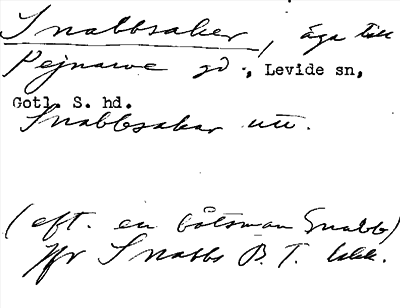 Snabbsaker, äga till
Pejnarve gd., Levide sn,
Gotl. S. hd.
Snabbsakar utt.
(eft. en båtsman Snabb)
jfr Snabbs B. T.